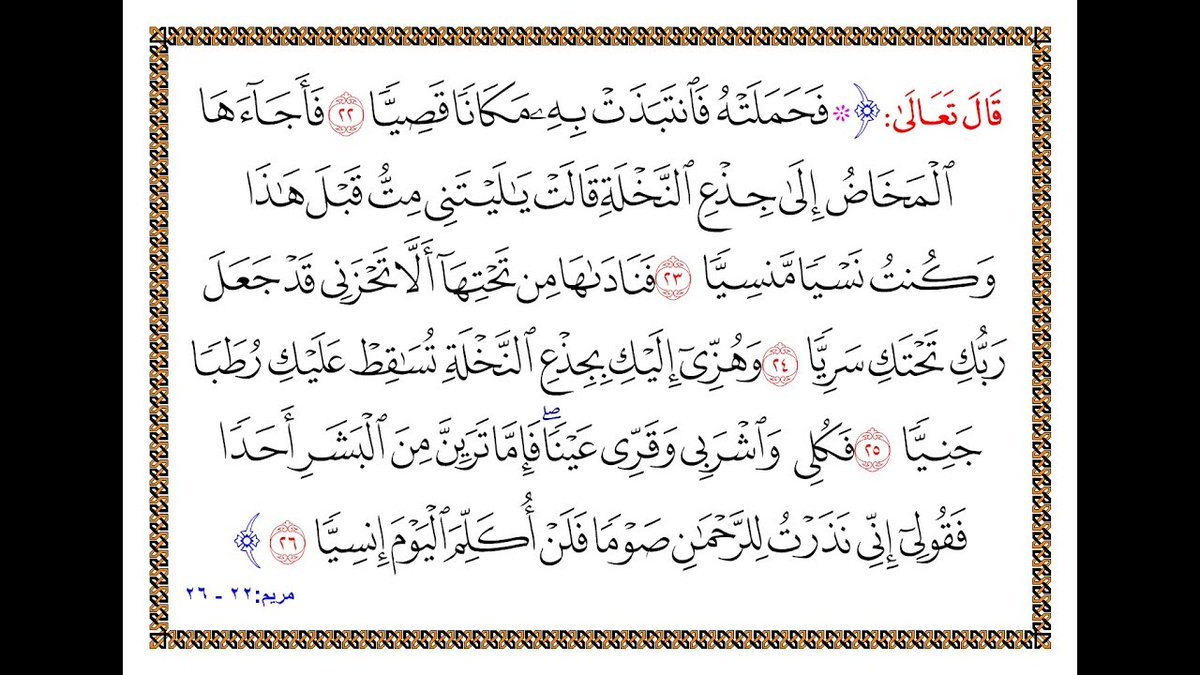 قَالَ تَعَالَىٰ: ﴿ ۞ فَحَمَلَتْهُ فَٱنتَبَذَتْ بِهِۦ مَكَانٗا قَصِيّٗا ٢٢ فَأَجَآءَهَا
ٱلْمَخَاضُ إِلَىٰ جِذْعِ ٱلنَّخْلَةِ قَالَتْ يَٰلَيْتَنِي مِتُّ قَبْلَ هَٰذَا
وَكُنتُ نَسْيٗا مَّنسِيّٗا ٢٣ فَنَادَىٰهَا مِن تَحْتِهَآ أَلَّا تَحْزَنِي قَدْ جَعَلَ
رَبُّكِ تَحْتَكِ سَرِيّٗا ٢٤ وَهُزِّيٓ إِلَيْكِ بِجِذْعِ ٱلنَّخْلَةِ تُسَٰقِطْ عَلَيْكِ رُطَبٗا
جَنِيّٗا ٢٥ فَكُلِي وَٱشْرَبِي وَقَرِّي عَيْنٗاۖ فَإِمَّا تَرَيِنَّ مِنَ ٱلْبَشَرِ أَحَدٗا
فَقُولِيٓ إِنِّي نَذَرْتُ لِلرَّحْمَٰنِ صَوْمٗا فَلَنْ أُكَلِّمَ ٱلْيَوْمَ إِنسِيّٗا ٢٦ ﴾
مريم: ٢٢ - ٢٦